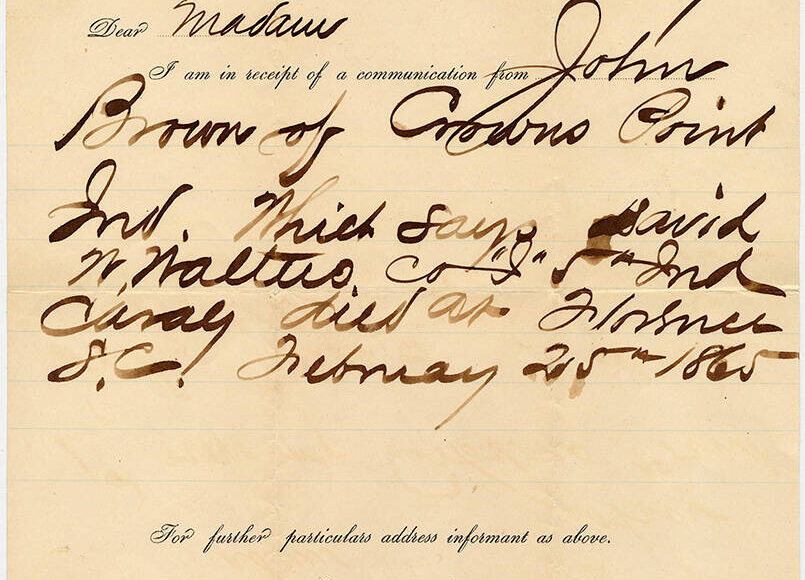 Dear Madam
I am in receipt of a communication from John
Brown of Crowns Point
Ind. Which says David
W. Walters Co "I" 5th Ind
Cavaly died at Florence
S.C. Februay 25th 1865
For further particulars address informant as above.